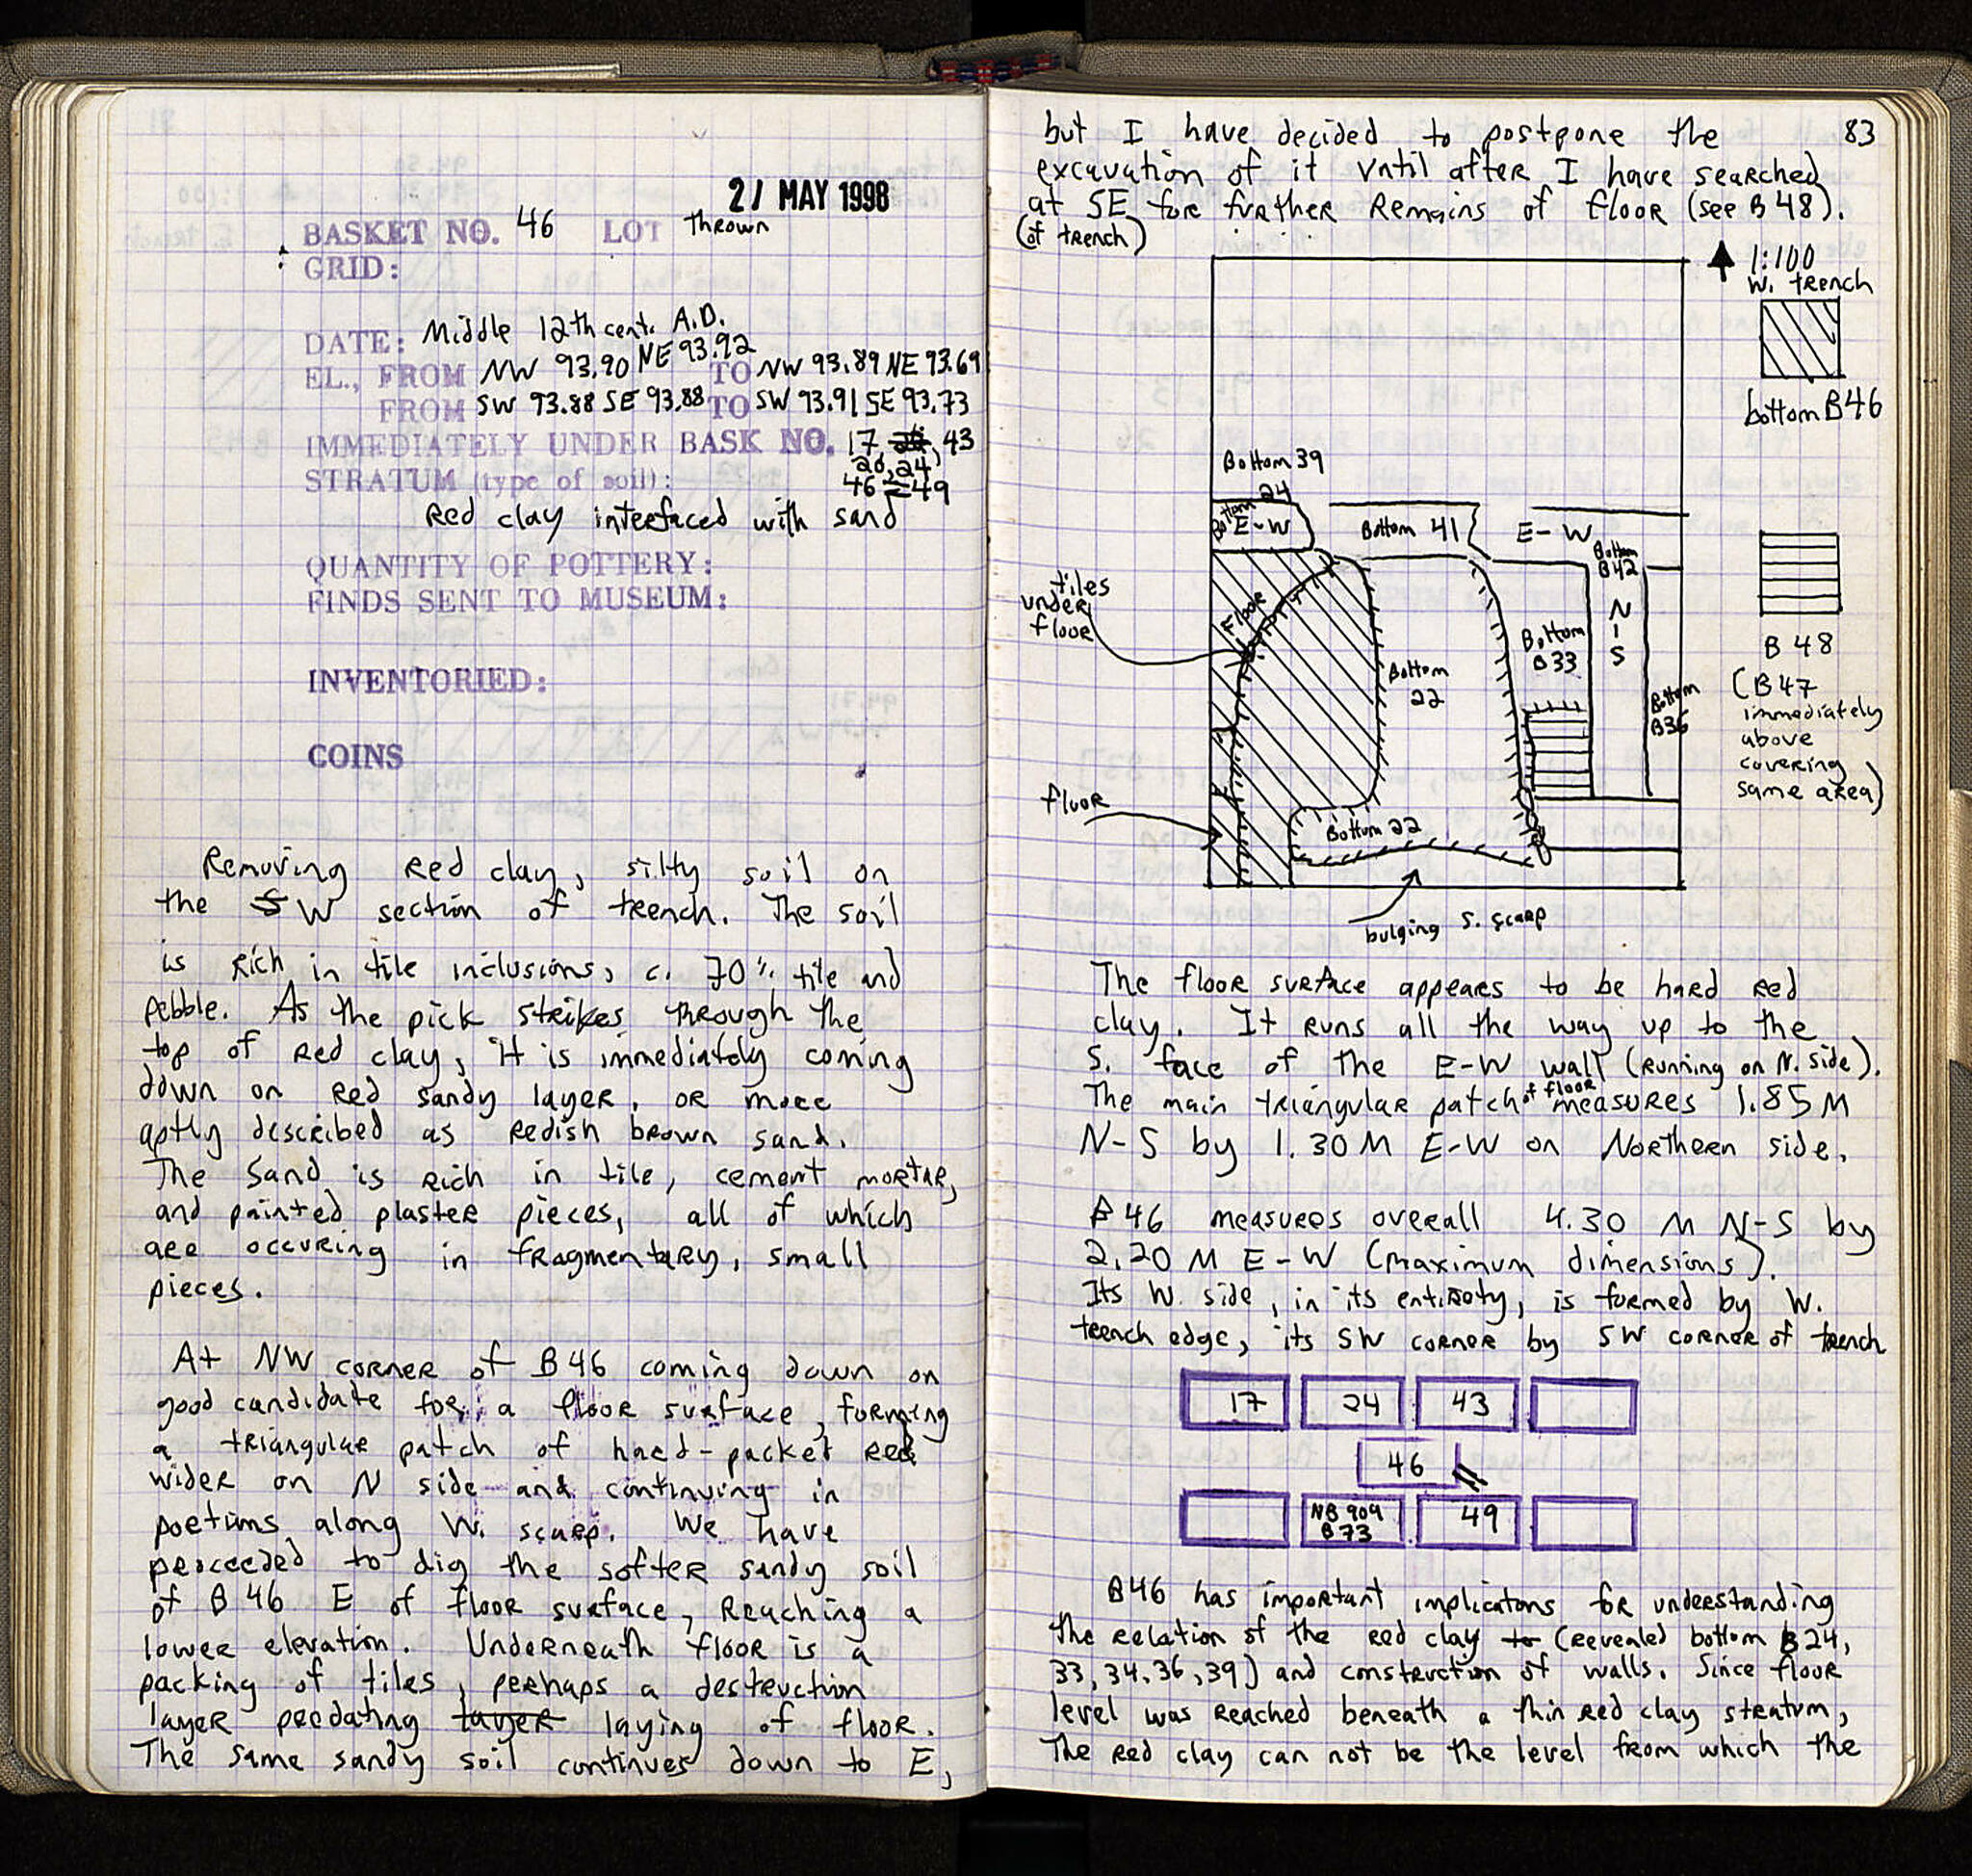 21 MAY 1998
BASKET NO. 46 LOT Thrown
GRID:
DATE: Middle 12th cent. A.D.
EL., FROM NW 93.90 NE 93.92 TO NW 93.89 NE 93.69
FROM SW 93.88 SE 93.88 TO SW 93.91 SE 93.73
IMMEDIATELY UNDER BASK NO. 17, 43
20, 24
STRATUM (type of soil): 46 = 49
Red clay interfaced with sand
QUANTITY OF POTTERY:
FINDS SENT TO MUSEUM:
INVENTORIED:
COINS
Removing red clay, silty soil on
the SW section of trench. The soil
is rich in tile inclusions, c. 70% tile and
pebble. As the pick strikes through the
top of red clay, it is immediately coming
down on red sandy layer, or more
aptly described as redish brown sand.
The sand is rich in tile, cement mortar,
and painted plaster pieces, all of which
are occuring in fragmentary, small
pieces.
At NW corner of B46 coming down on
good candidate for a floor surface, forming
a triangular patch of hard-packet red
wider on N side and continuing in
portions along W. scarp. We have
proceeded to dig the softer sandy soil
of B46 E of floor surface, reaching a
lower elevation. Underneath floor is a
packing of tiles, perhaps a destruction
layer predating layer laying of floor.
The same sandy soil continues down to E,
but I have decided to postpone the 83
excavation of it until after I have searched
at SE for further remains of floor (see B48).
(of trench)
1:100
W. trench
bottom B46
Bottom 39
Bottom 24
E-W
Bottom 41
E-W
Bottom B42
tiles
under
floor
Floor
N-S
Bottom
B33
B 48
Bottom
22
(B47
immediately
above
covering
same area)
Bottom
B36
floor
Bottom 22
bulging S. scarp
The floor surface appears to be hard red
clay. It runs all the way up to the
S. face of the E-W wall (running on N. side).
The main triangular patch of floor measures 1.85 M
N-S by 1.30 M E-W on Northern side.
B46 measures overall 4.30 M N-S by
2.20 M E-W (maximum dimensions).
Its W. side, in its entirety, is formed by W.
trench edge, its SW corner by SW corner of trench
17 24 43
46 =
NB 909
B73
49
B46 has important implications for understanding
the relation of the red clay to (revealed bottom B24,
33, 34, 36, 39) and construction of walls. Since floor
level was reached beneath a thin red clay stratum,
the red clay can not be the level from which the